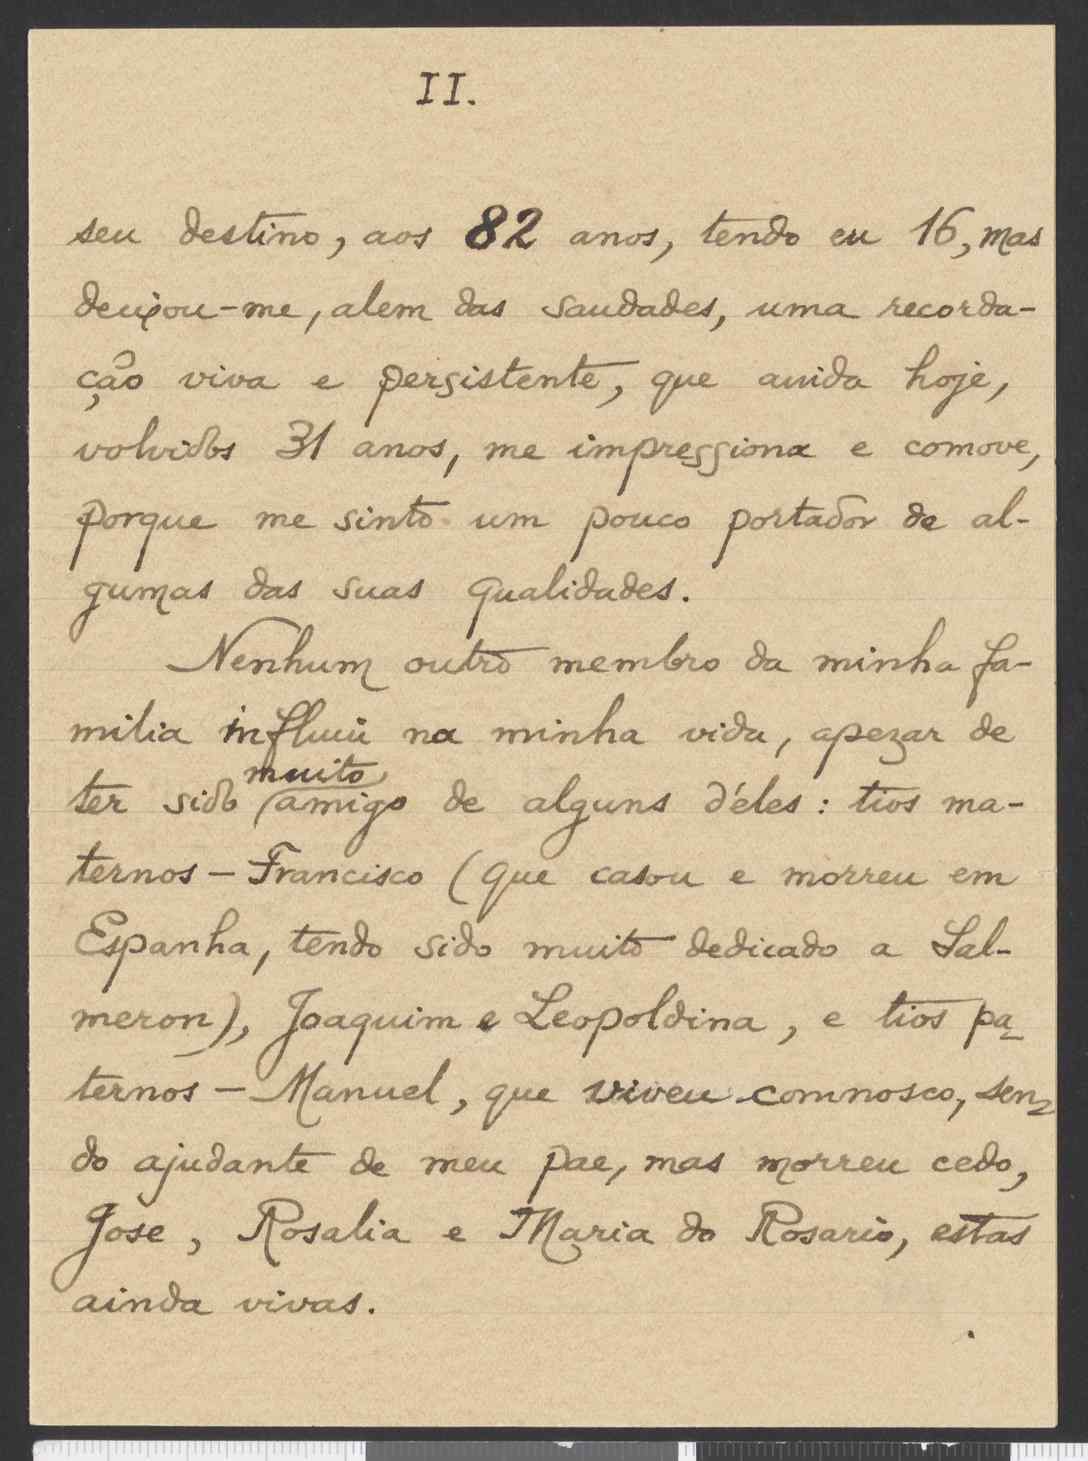 II.
seu destino, aos 82 anos, tendo eu 16, mas
deixou-me, alem das saudades, uma recorda-
ção viva e persistente, que ainda hoje,
volvidos 31 anos, me impressiona e comove,
porque me sinto um pouco portador de al-
gumas das suas qualidades.
Nenhum outro membro da minha fa-
milia influiu na minha vida, apezar de
muito
ter sido amigo de alguns d'éles: tios ma-
ternos - Francisco (que casou e morreu em
Espanha, tendo sido muito dedicado a Sal-
meron), Joaquim e Leopoldina, e tios pa-
ternos - Manuel, que viveu comnosco, sen-
do ajudante de meu pae, mas morreu cedo,
Jose, Rosalia e Maria do Rosario, estas
ainda vivas.